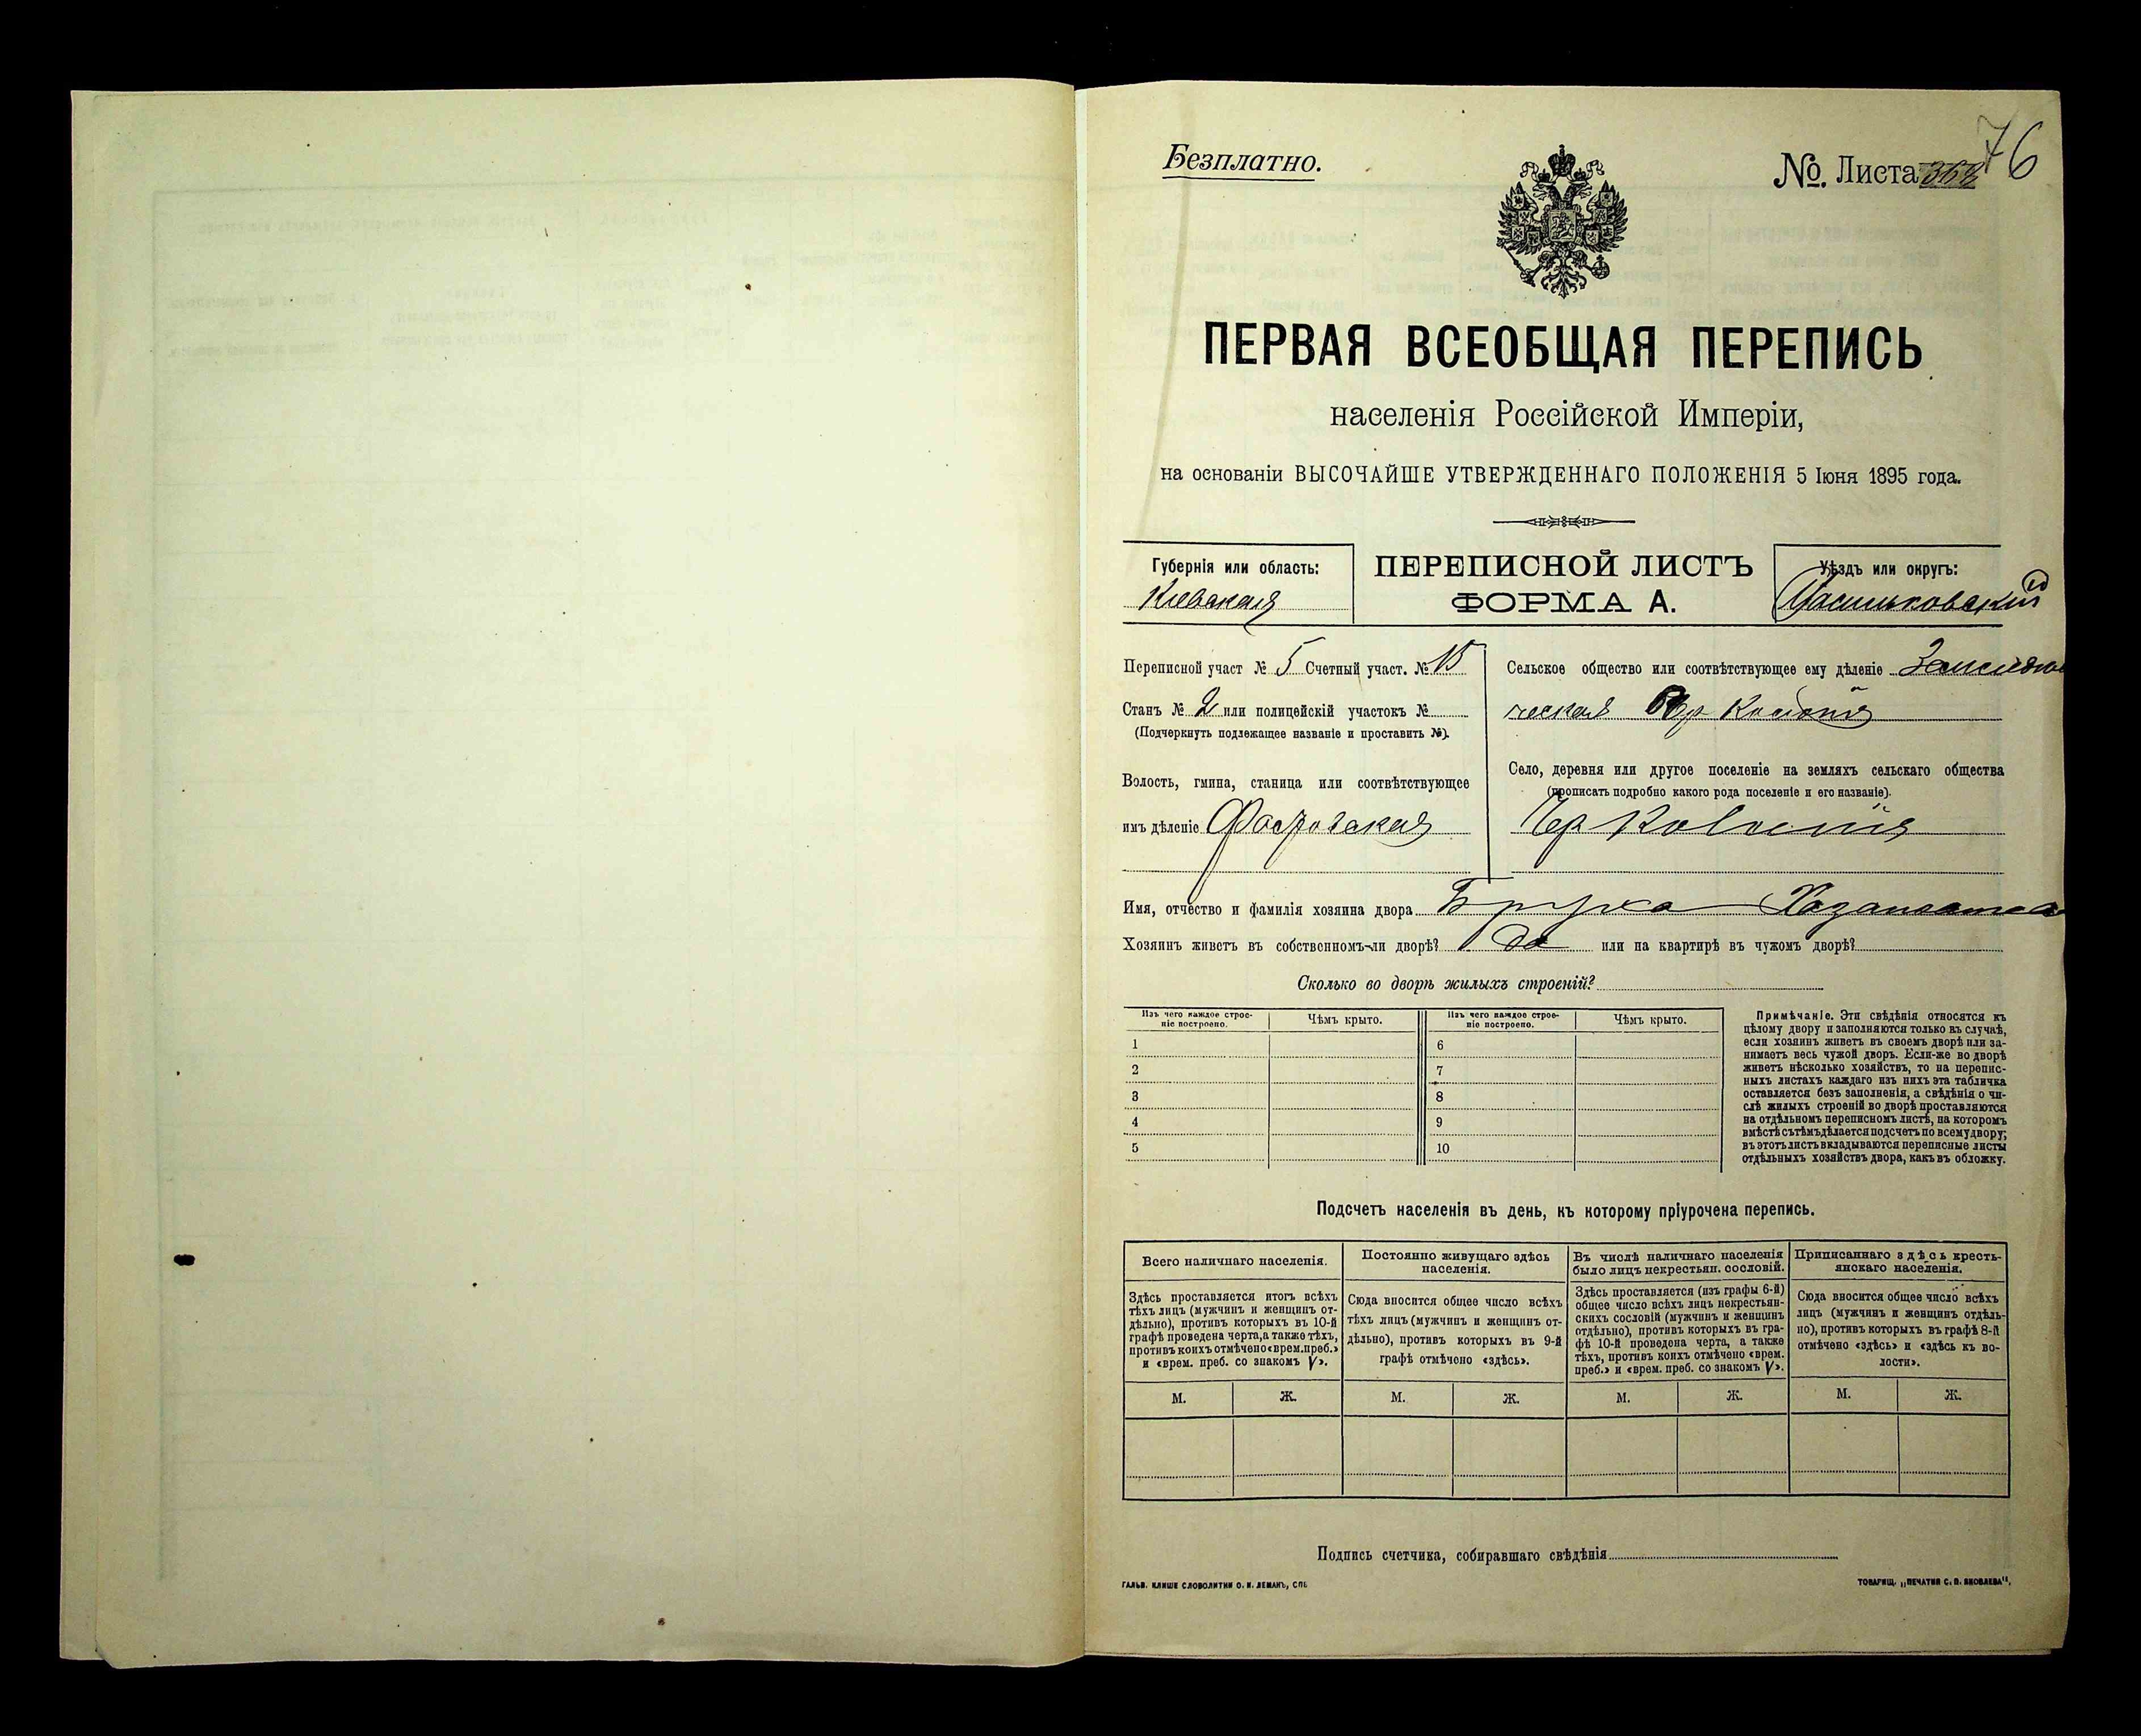 76
Безплатно.
№. Листа
ПЕРВАЯ ВСЕОБЩАЯ ПЕРЕПИСЬ
населенія Россійской Имперіи,
на основаніи ВЫСОЧАЙШЕ УТВЕРЖДЕННАГО ПОЛОЖЕНІЯ 5 Іюня 1895 года.
Губернія или область:
Киевская
ПЕРЕПИСНОЙ ЛИСТЪ
ФОРМА А.
Уѣздъ или округъ:
Васильковский
Переписной участ № 5 Счетный участ. № 15
Станъ № 2 или полицейскій участокъ №
(Подчеркнуть подлежащее названіе и проставить №).
Волость, гмина, станица или соотвѣтствующее
имъ дѣленіе Фастовская
Сельское общество или соотвѣтствующее ему дѣленіе Земледѣль
ческая Чер Колонія
Село, деревня или другое поселеніе на земляхъ сельскаго общества
(прописать подробно какого рода поселеніе и его названіе).
Чер Колонія
Имя, отчество и фамилія хозяина двора
Хозяинъ живетъ въ собственномъ-ли дворѣ? да или на квартирѣ въ чужомъ дворѣ?
Сколько во дворѣ жилыхъ строеній?
Изъ чего каждое строе-
ніе построено.
Чѣмъ крыто.
Изъ чего каждое строе-
ніе построено.
Чѣмъ крыто.
1 6
2 7
3 8
4 9
5 10
Примѣчаніе. Эти свѣдѣнія относятся къ
цѣлому двору и заполняются только въ случаѣ,
если хозяинъ живетъ въ своемъ дворѣ или за-
нимаетъ весь чужой дворъ. Если-же во дворѣ
живетъ нѣсколько хозяйствъ, то на перепис-
ныхъ листахъ каждаго изъ нихъ эта табличка
оставляется безъ заполненія, а свѣдѣнія о чи-
слѣ жилыхъ строеній во дворѣ проставляются
на отдѣльномъ переписномъ листѣ, на которомъ
вмѣстѣ съ тѣмъ дѣлается подсчетъ по всему двору;
въ этотъ листъ вкладываются переписные листы
отдѣльныхъ хозяйствъ двора, какъ въ обложку.
Подсчетъ населенія въ день, къ которому пріурочена перепись.
Всего наличнаго населенія.
Здѣсь проставляется итогъ всѣхъ
тѣхъ лицъ (мужчинъ и женщинъ от-
дѣльно), противъ которыхъ въ 10-й
графѣ проведена черта, а также тѣхъ,
противъ коихъ отмѣчено «врем. преб.»
и «врем. преб. со знакомъ V».
Постоянно живущаго здѣсь
населенія.
Сюда вносится общее число всѣхъ
тѣхъ лицъ (мужчинъ и женщинъ от-
дѣльно), противъ которыхъ въ 9-й
графѣ отмѣчено «здѣсь».
Въ числѣ наличнаго населенія
было лицъ некрестьян. сословій.
Здѣсь проставляется (изъ графы 6-й)
общее число всѣхъ лицъ некрестьян-
скихъ сословій (мужчинъ и женщинъ
отдѣльно), противъ которыхъ въ гра-
фѣ 10-й проведена черта, а также
тѣхъ, противъ коихъ отмѣчено «врем.
преб.» и «врем. преб. со знакомъ V».
Приписаннаго здѣсь кресть-
янскаго населенія.
Сюда вносится общее число всѣхъ
лицъ (мужчинъ и женщинъ отдѣль-
но), противъ которыхъ въ графѣ 8-й
отмѣчено «здѣсь» и «здѣсь къ во-
лости».
М. Ж. М. Ж. М. Ж. М. Ж.
Подпись счетчика, собиравшаго свѣдѣнія
ГАЛЬВ. КЛИШЕ СЛОВОЛИТНИ О. И. ЛЕМАНЪ, СПБ
ТОВАРИЩ. „ПЕЧАТНЯ С. П. ЯКОВЛЕВА“,